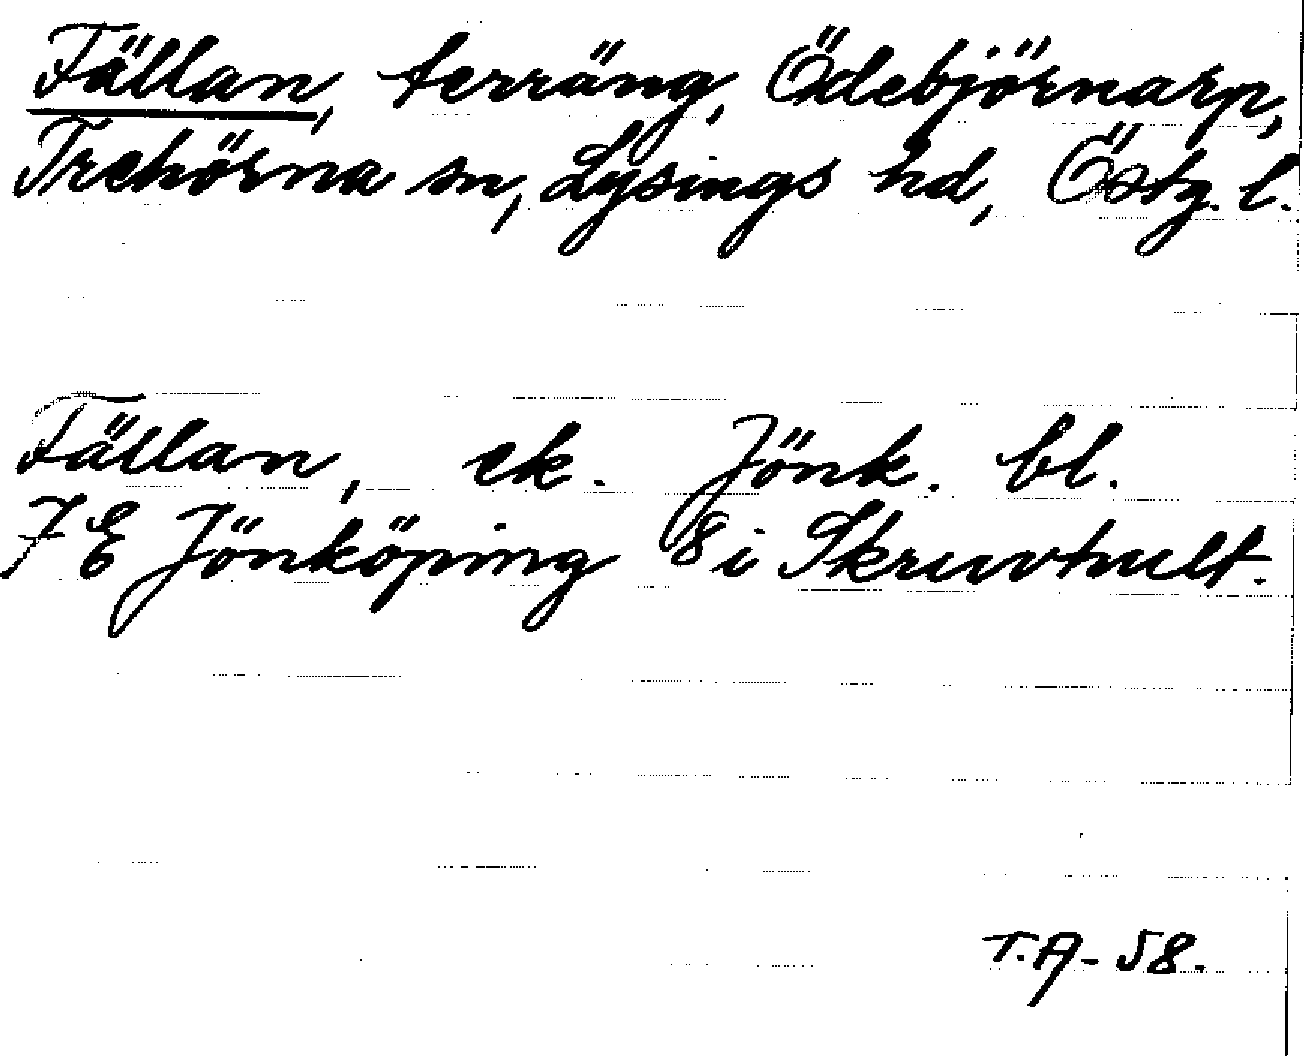 Fällan, terräng, Ödebjörnarp,
Trehörna sn, Lysings hd, Östg. l.
Fällan, ek. Jönk. bl.
7E Jönköping 8 i Skruvhult.
T.A-58.